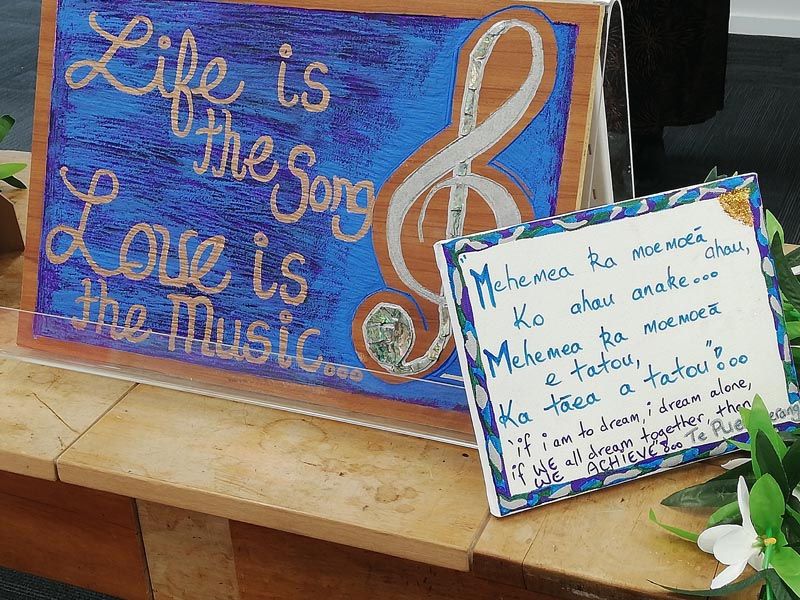 Life is
the Song
Love is
the Music...
"Mehemea ka moemoeā ahau,
Ko ahau anake...
Mehemea ka moemoeā
e tatou,
Ka tāea a tatou"...
'if i am to dream, i dream alone,
if WE all dream together, then
WE ACHIEVE'... Te Pue